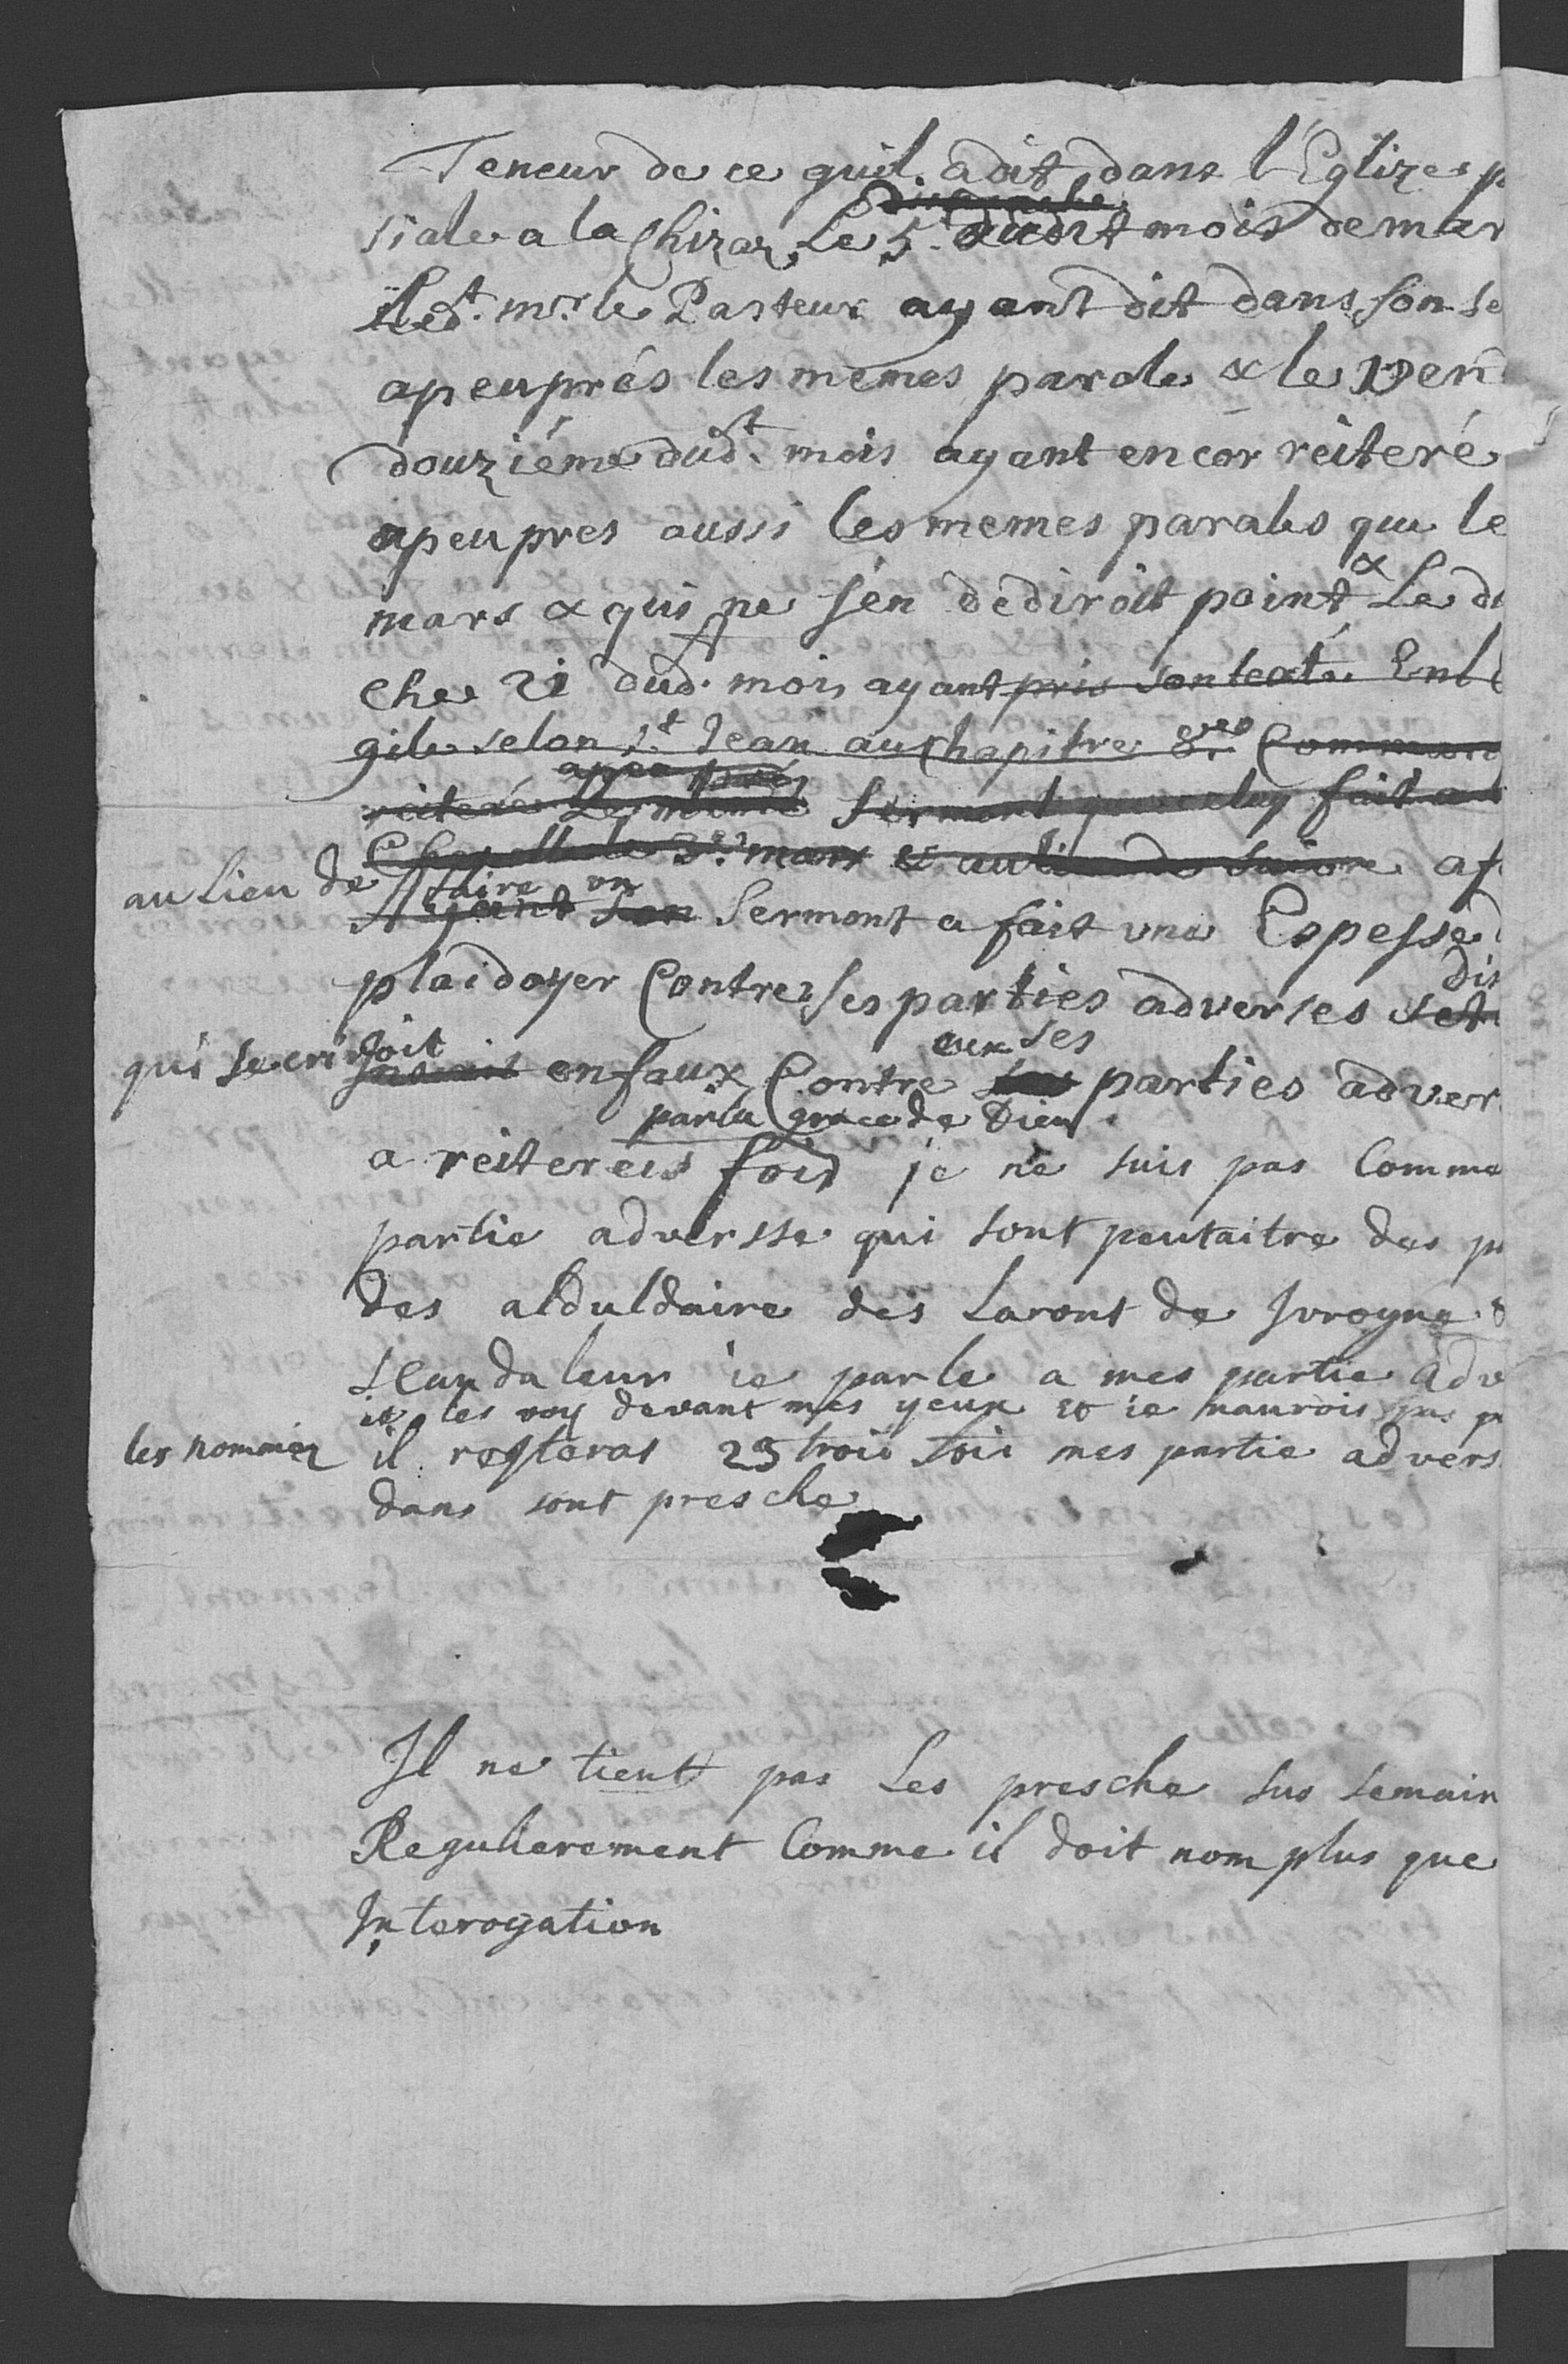 Teneur de ce quil a dit dans l'Eglize p
siale a la Chizaz, Le 5.e dudit mois de mar
Led.t mr. le Pasteur ayant dit dans son se
apeuprés les mêmes parole & le Vend
douziéme dud.t mois ayant encor réiteré
apeupres aussi les memes parales que le
mars & quis ne s'én dediroit point & Le di
che 21 dud.t mois ayant pris son texte En l
gile selon S.t Jean au Chapitre 8.me
réiteré apeu prés Sermont que celuy fait a
Chapelle le 3.e mars & au lieu de suivre af
au lieu de faire un Sermont a fait une Espesse d
plaidoyer Contre ses parties adverses dis
qui se crivoit en faux Contre eux ses parties adver
a reiterées fois par la grace de Dieu je ne suis pas Comme
partie adversse qui sont peutaitre des p
des alduldaire des Laront de Jvrogne d
scandaleur ie parle a mes partie adv
ie les voy devant mes yeux et ie naurois pas p
les nommez il resteras 23 trois fois mes partie advers
dans sont presche
Il ne tient pas Les presche sus semain
Regulierement Comme il doit nom plus que
Interogation